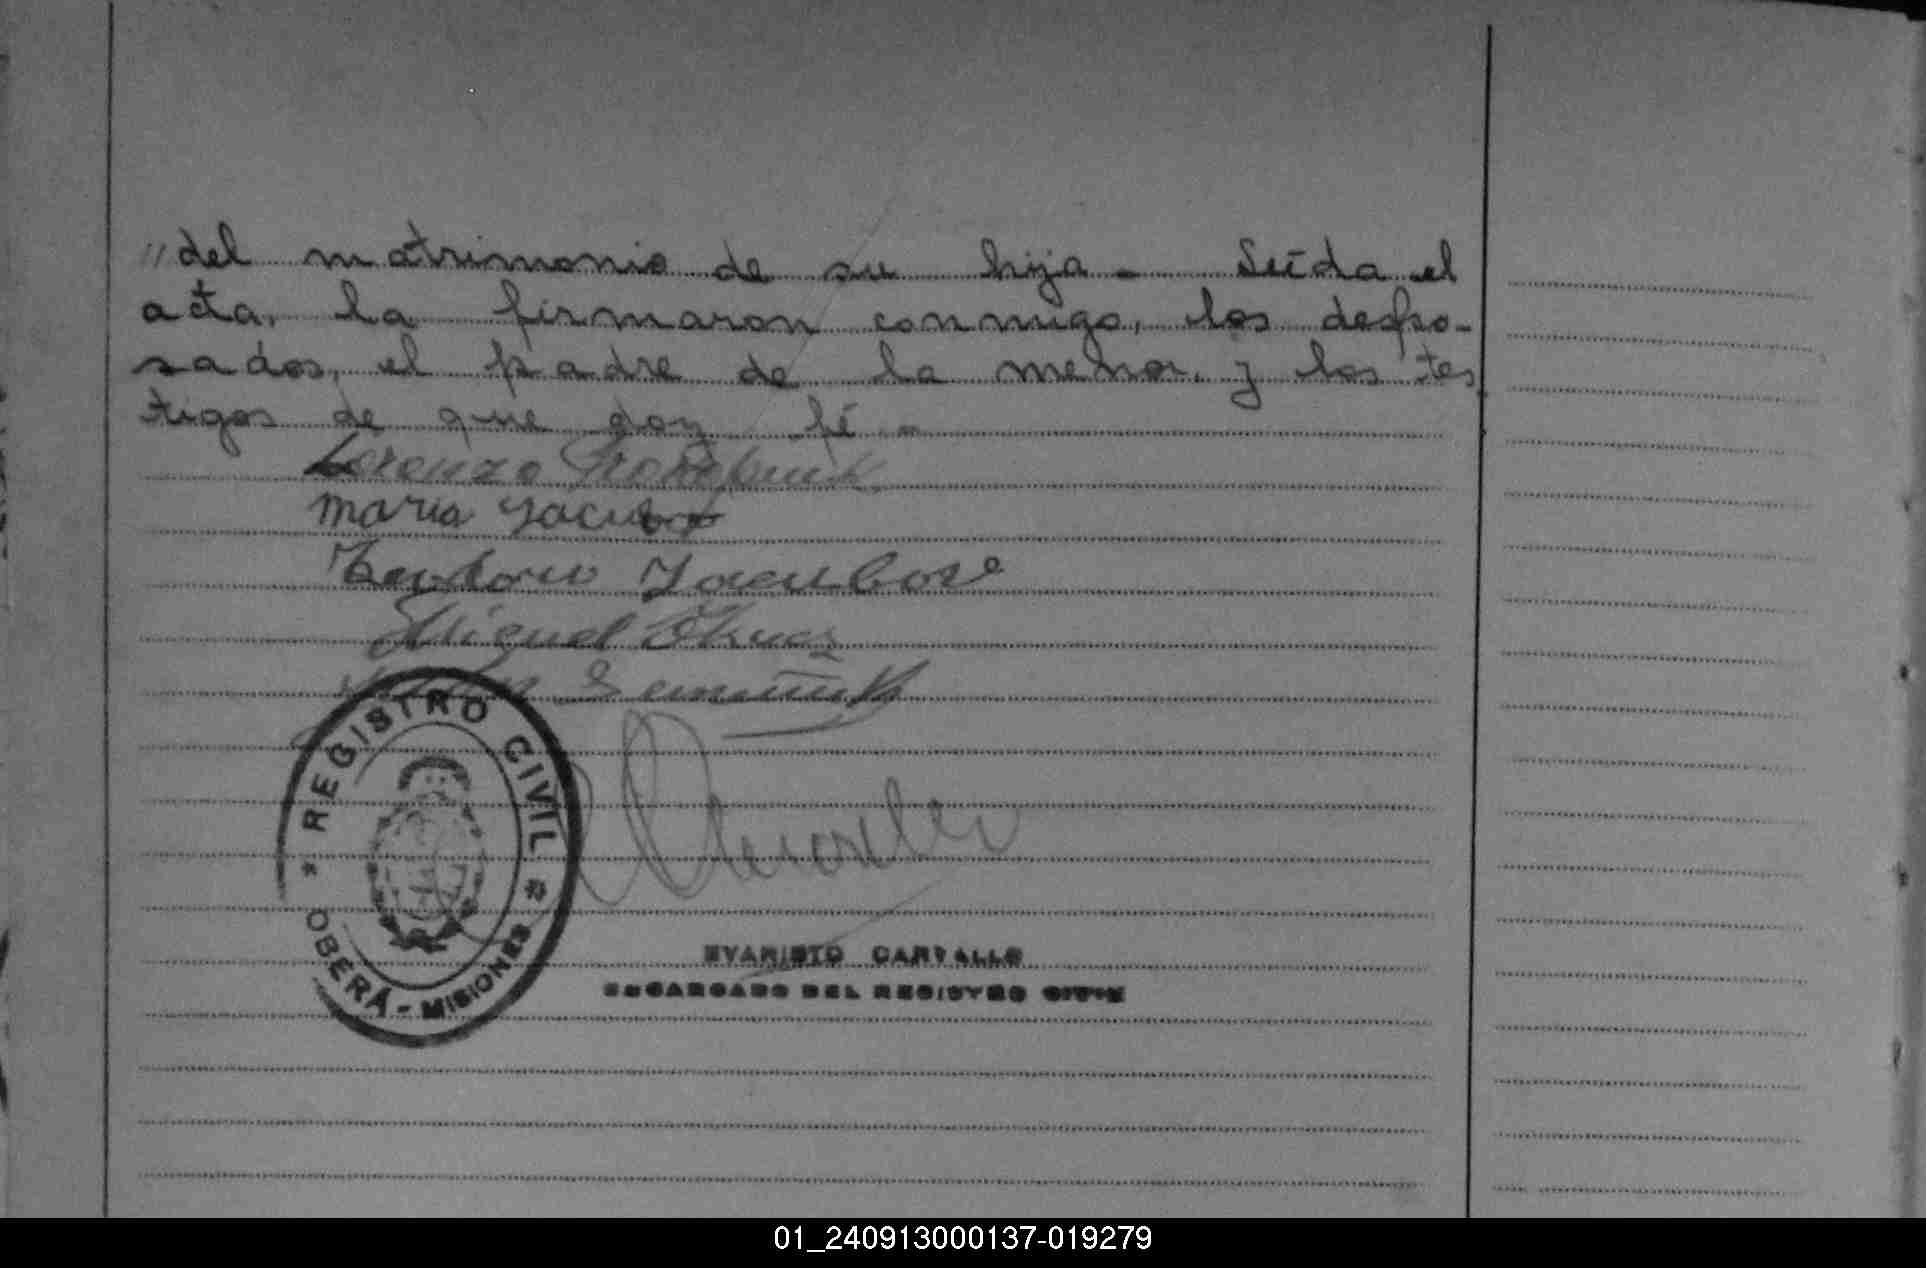 "del matrimonio de su hija - Leída el
acta, la firmaron conmigo, los despo-
sados, el padre de la menor, y los tes
tigos de que doy fé -
Lorenzo
Maria Yacubo
Teodoro Yacubove
Miguel
REGISTRO CIVIL
OBERÁ - MISIONES
EVARISTO CARVALLO
ENCARGADO DEL REGISTRO CIVIL
01_240913000137-019279